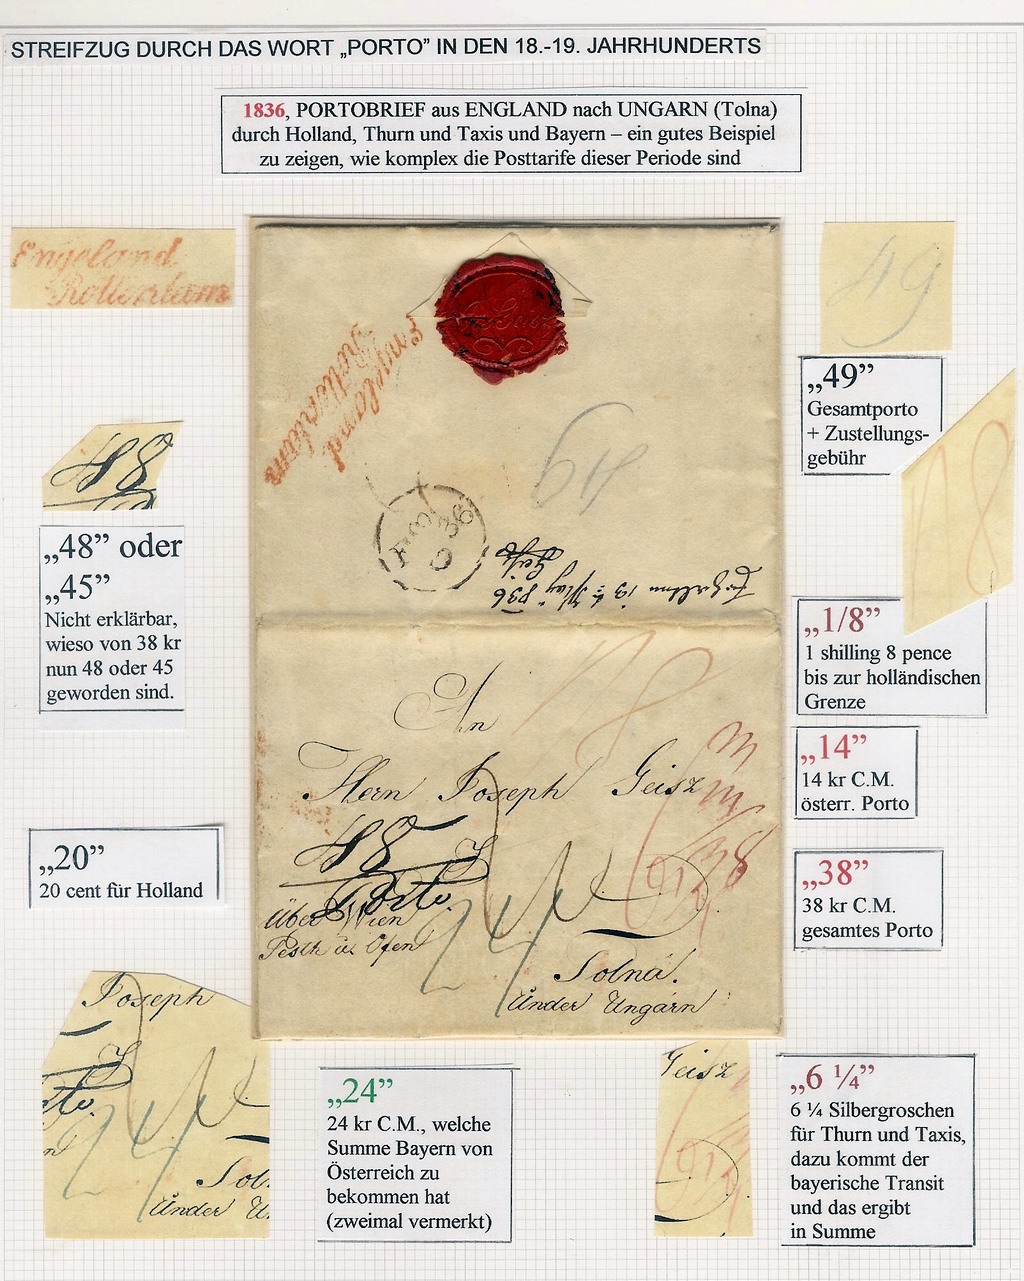 STREIFZUG DURCH DAS WORT „PORTO” IN DEN 18.-19. JAHRHUNDERTS
1836, PORTOBRIEF aus ENGLAND nach UNGARN (Tolna)
durch Holland, Thurn und Taxis und Bayern – ein gutes Beispiel
zu zeigen, wie komplex die Posttarife dieser Periode sind
Engeland
Rotterdam
49
„49”
Gesamtporto
+ Zustellungs-
gebühr
Engeland
Rotterdam
49
36
48
„48” oder
„45”
Nicht erklärbar,
wieso von 38 kr
nun 48 oder 45
geworden sind.
1/8
„1/8”
1 shilling 8 pence
bis zur holländischen
Grenze
„14”
14 kr C.M.
österr. Porto
„38”
38 kr C.M.
gesamtes Porto
„20”
20 cent für Holland
1/8
An
Herrn Joseph Geisz
48
Porto.
38
14
24
Über Wien
Pesth u. Ofen
Tolná.
Under Ungarn
Joseph
24
Under U
„24”
24 kr C.M., welche
Summe Bayern von
Österreich zu
bekommen hat
(zweimal vermerkt)
Geisz
„6 ¼”
6 ¼ Silbergroschen
für Thurn und Taxis,
dazu kommt der
bayerische Transit
und das ergibt
in Summe